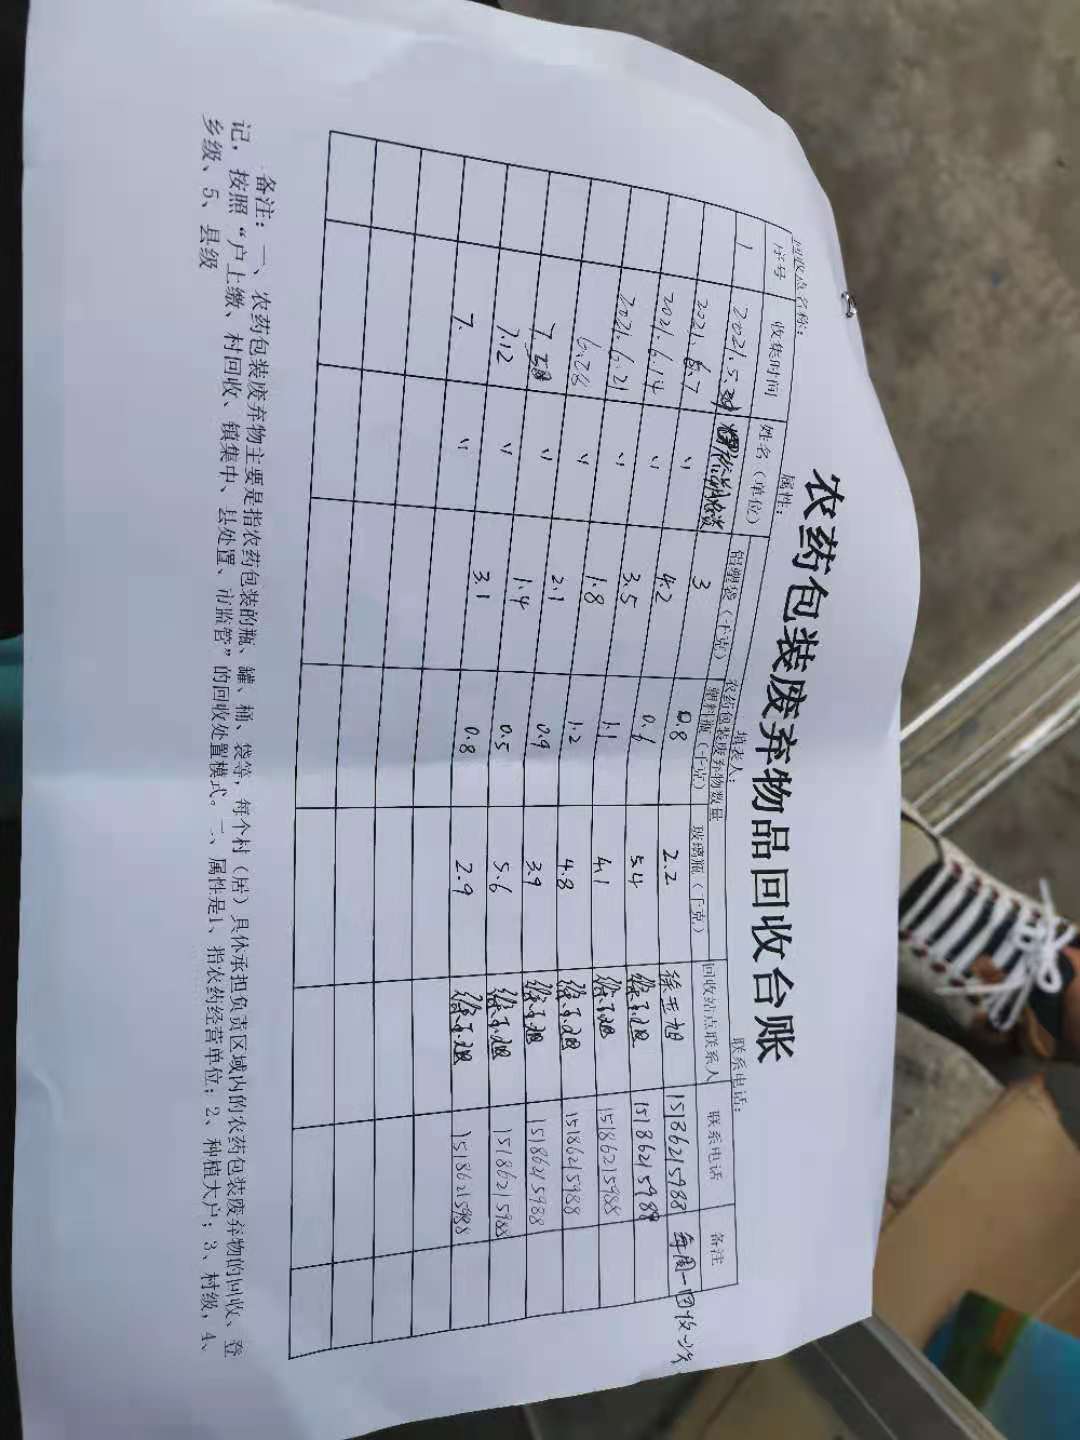 农药包装废弃物品回收台账
回收点名称： 属性： 填表人： 联系电话：
序号 收集时间 姓名（单位） 农药包装废弃物数量 回收站点联系人 联系电话 备注
铝塑袋（千克） 塑料瓶（千克） 玻璃瓶（千克）
1 2021.5.31 3 0.8 2.2 徐玉旭 15186215988 每周一回收一次
2021.6.7 〃 4.2 0.6 5.4 徐玉旭 15186215988
2021.6.14 〃 3.5 1.1 4.1 徐玉旭 15186215988
2021.6.21 〃 1.8 1.2 4.8 徐玉旭 15186215988
6.28 〃 2.1 0.9 3.9 徐玉旭 15186215988
7.5 〃 1.4 0.5 5.6 徐玉旭 15186215988
7.12 〃 3.1 0.8 2.9 徐玉旭 15186215988
7. 〃
备注：一、农药包装废弃物主要是指农药包装的瓶、罐、桶、袋等，每个村（居）具体承担负责区域内的农药包装废弃物的回收、登
记，按照“户上缴、村回收、镇集中、县处置、市监管”的回收处置模式。二、属性是1、指农药经营单位；2、种植大户；3、村级，4、
乡级、5、县级